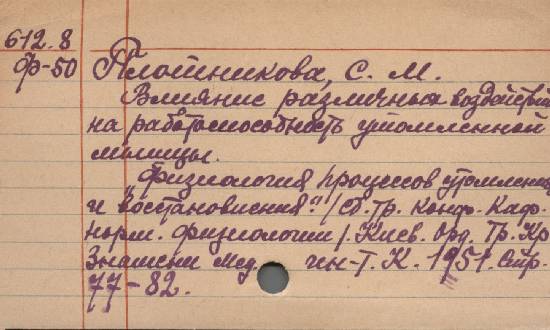 612.8
Ф-50 Плотникова, С. М.
Влияние различных воздействий
на работоспособность утомленной
мышцы.
"Физиология процессов утомления
и востановления." (Сб. Тр. Конф. Каф.
норм. физиологии). Киев. Орд. Тр. Кр.
Знамени Мед. ин-т. К. 1951. Стр.
77-82.